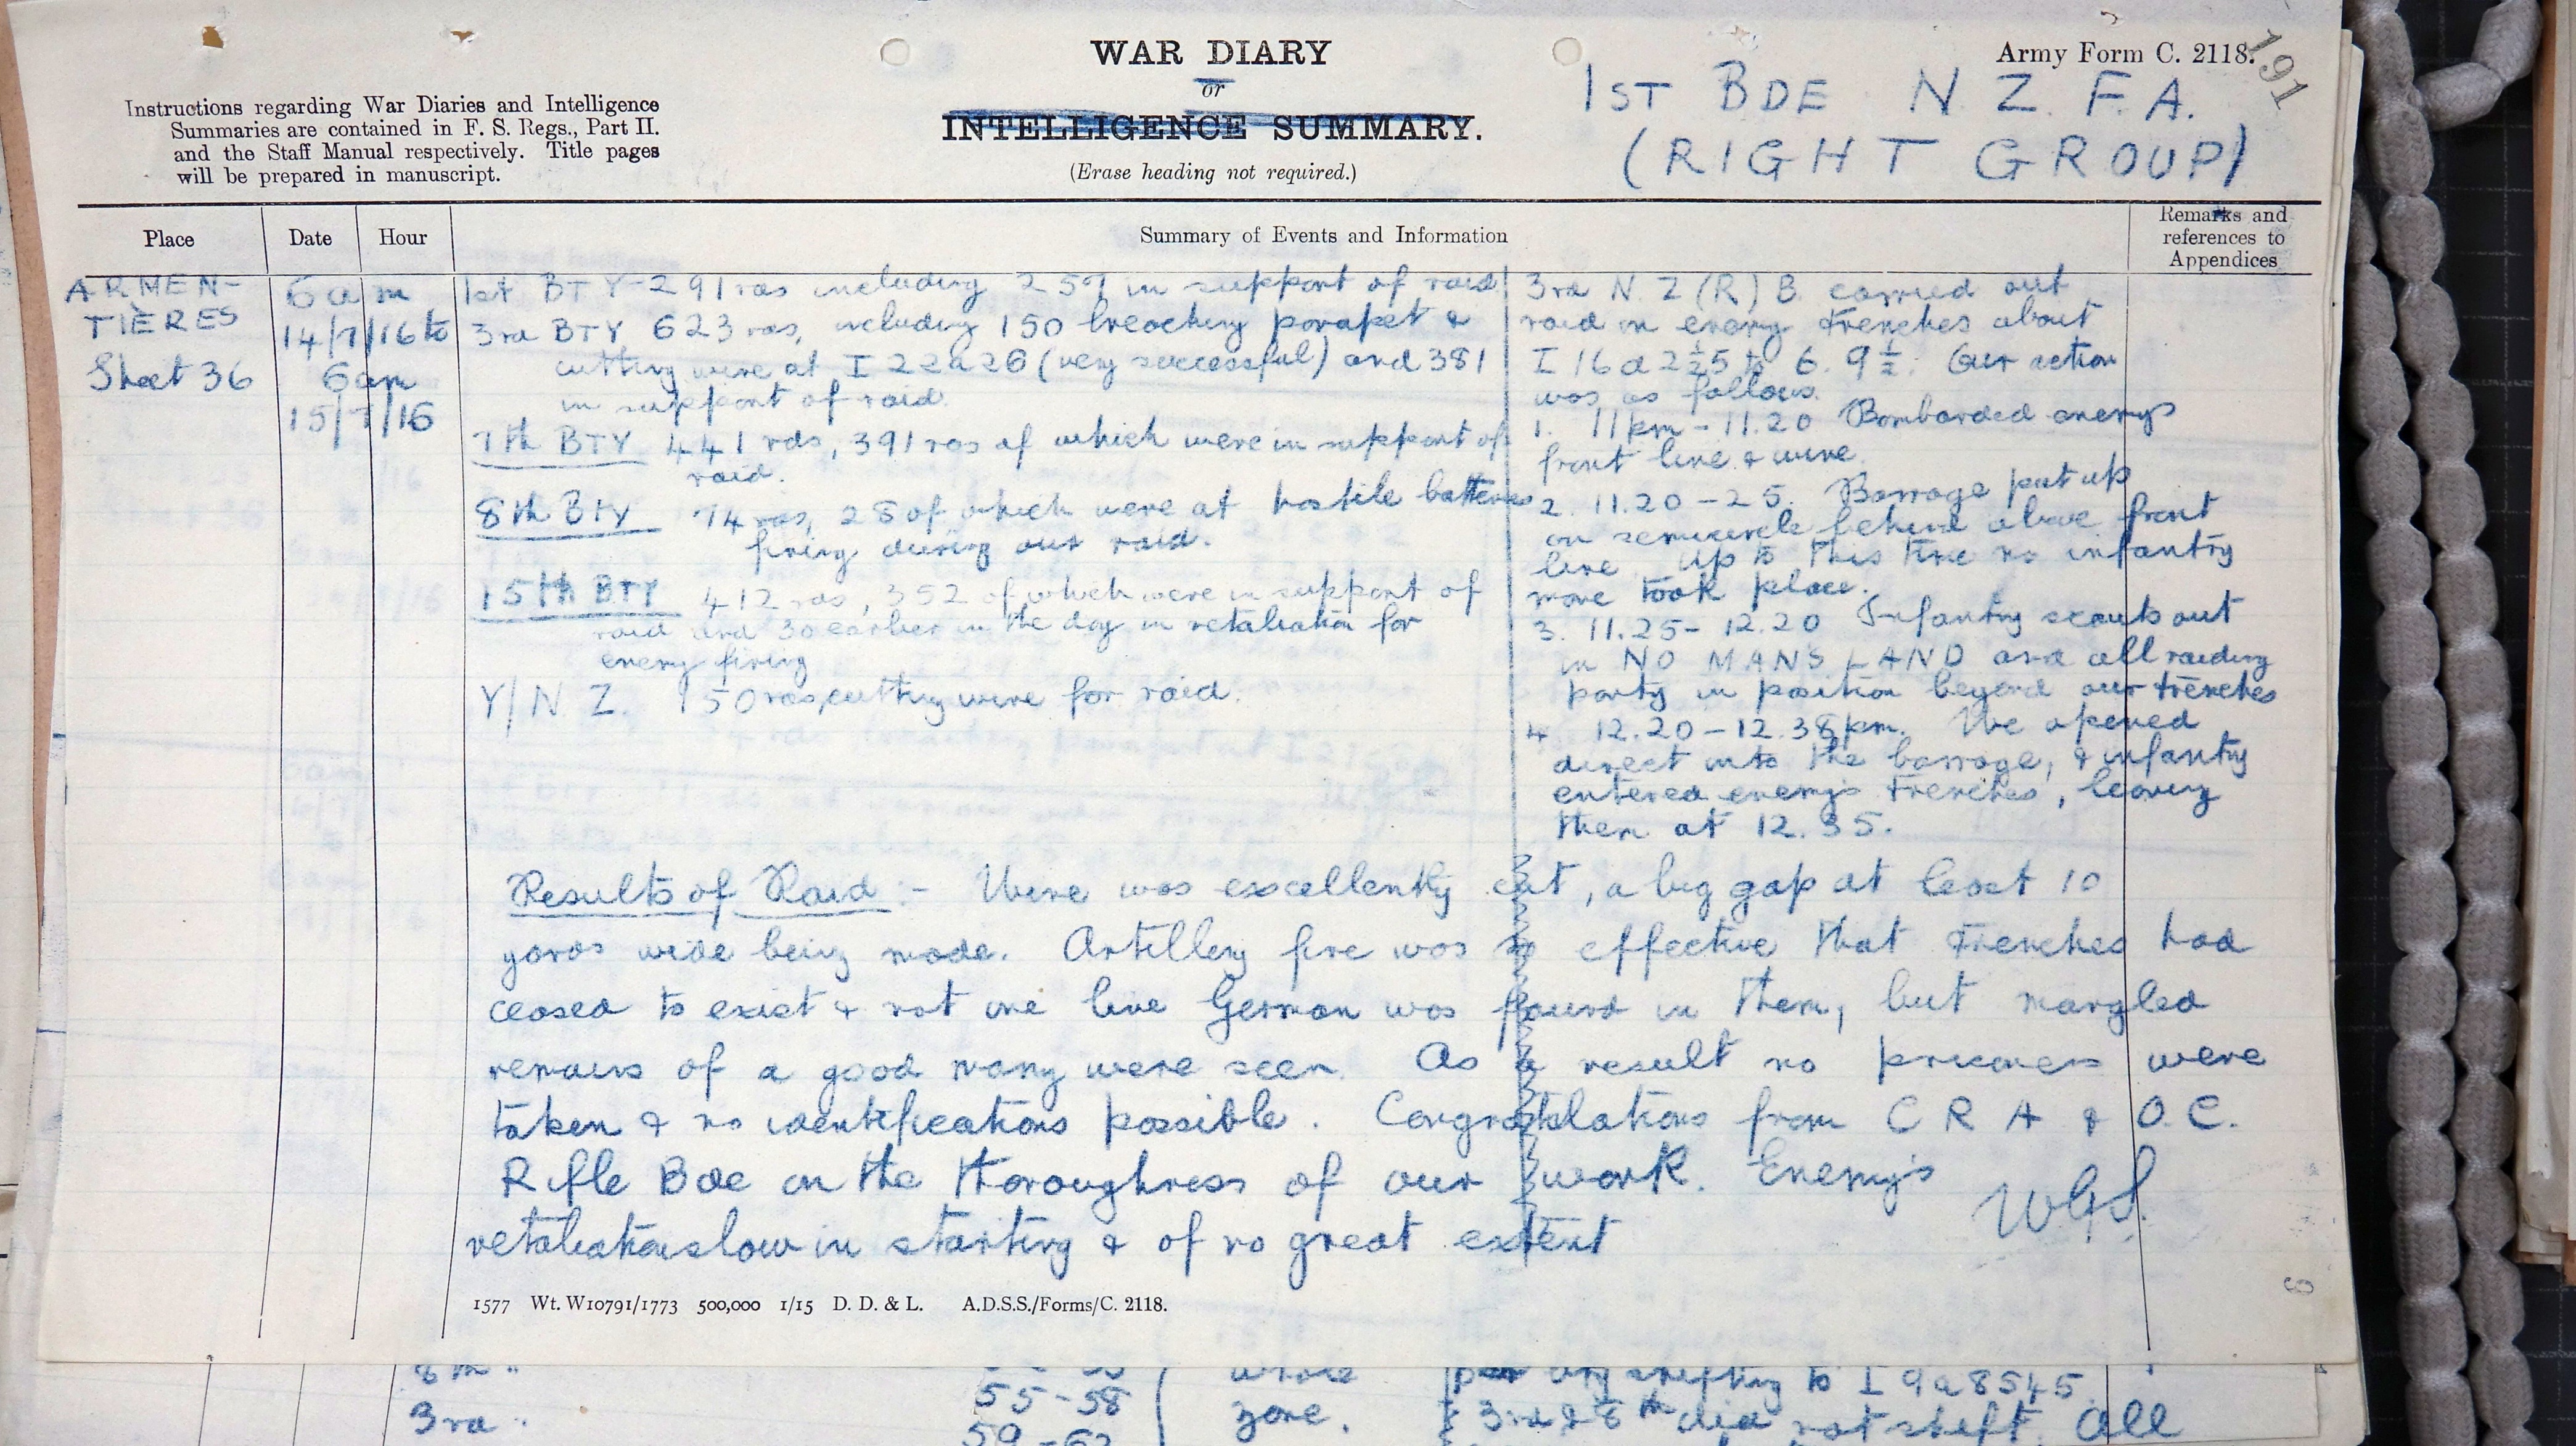 WAR DIARY
or
INTELLIGENCE SUMMARY.
(Erase heading not required.)
Army Form C. 2118.
191
1ST BDE N. Z. F. A.
(RIGHT GROUP)
Instructions regarding War Diaries and Intelligence
Summaries are contained in F. S. Regs., Part II.
and the Staff Manual respectively. Title pages
will be prepared in manuscript.
Place
Date
Hour
Summary of Events and Information
Remarks and
references to
Appendices
ARMEN-
TIÈRES
Sheet 36
6 am
14/7/16 to
6 am
15/7/16
1st BTY - 291 rds including 259 in support of raid
3rd BTY 623 rds, including 150 breaching parapet &
cutting wire at I 22 a 26 (very successful) and 381
in support of raid.
7th BTY 441 rds, 391 rds of which were in support of
raid.
8th BTY 74 rds, 28 of which were at hostile batteries
firing during our raid.
15th BTY 412 rds, 352 of which were in support of
raid and 30 earlier in the day in retaliation for
enemy firing
Y/N.Z. 150 rds, cutting wire for raid.
3rd N. Z (R) B. carried out
raid on enemy trenches about
I 16 d 2½ 5 to 6. 9½. Our action
was as follows.
1. 11 pm - 11.20 Bombarded enemys
front line & wire.
2. 11.20 - 25. Barrage put up
on semicircle behind above front
line. Up to this time no infantry
move took place.
3. 11.25 - 12.20 Infantry scouts out
in NO MANS LAND and all raiding
party in position beyond our trenches
4. 12.20 - 12.38 pm. We opened
direct into the barrage, & infantry
entered enemy's trenches, leaving
them at 12.35.
Results of Raid :- Wire was excellently cut, a big gap at least 10
yards wide being made. Artillery fire was so effective that trenches had
ceased to exist & not one live German was found in them, but mangled
remains of a good many were seen. As a result no prisoners were
taken & no identifications possible. Congratulations from C R A & O.C.
Rifle Bde on the thoroughness of our work. Enemy's
retaliation slow in starting & of no great extent
WGS.
1577 Wt. W10791/1773 500,000 1/15 D. D. & L. A.D.S.S./Forms/C. 2118.
8th "
whole
shifting to I 9 a 8545.
55 - 58
3rd "
zone.
3rd & 8th did not shift. All
59 - 62